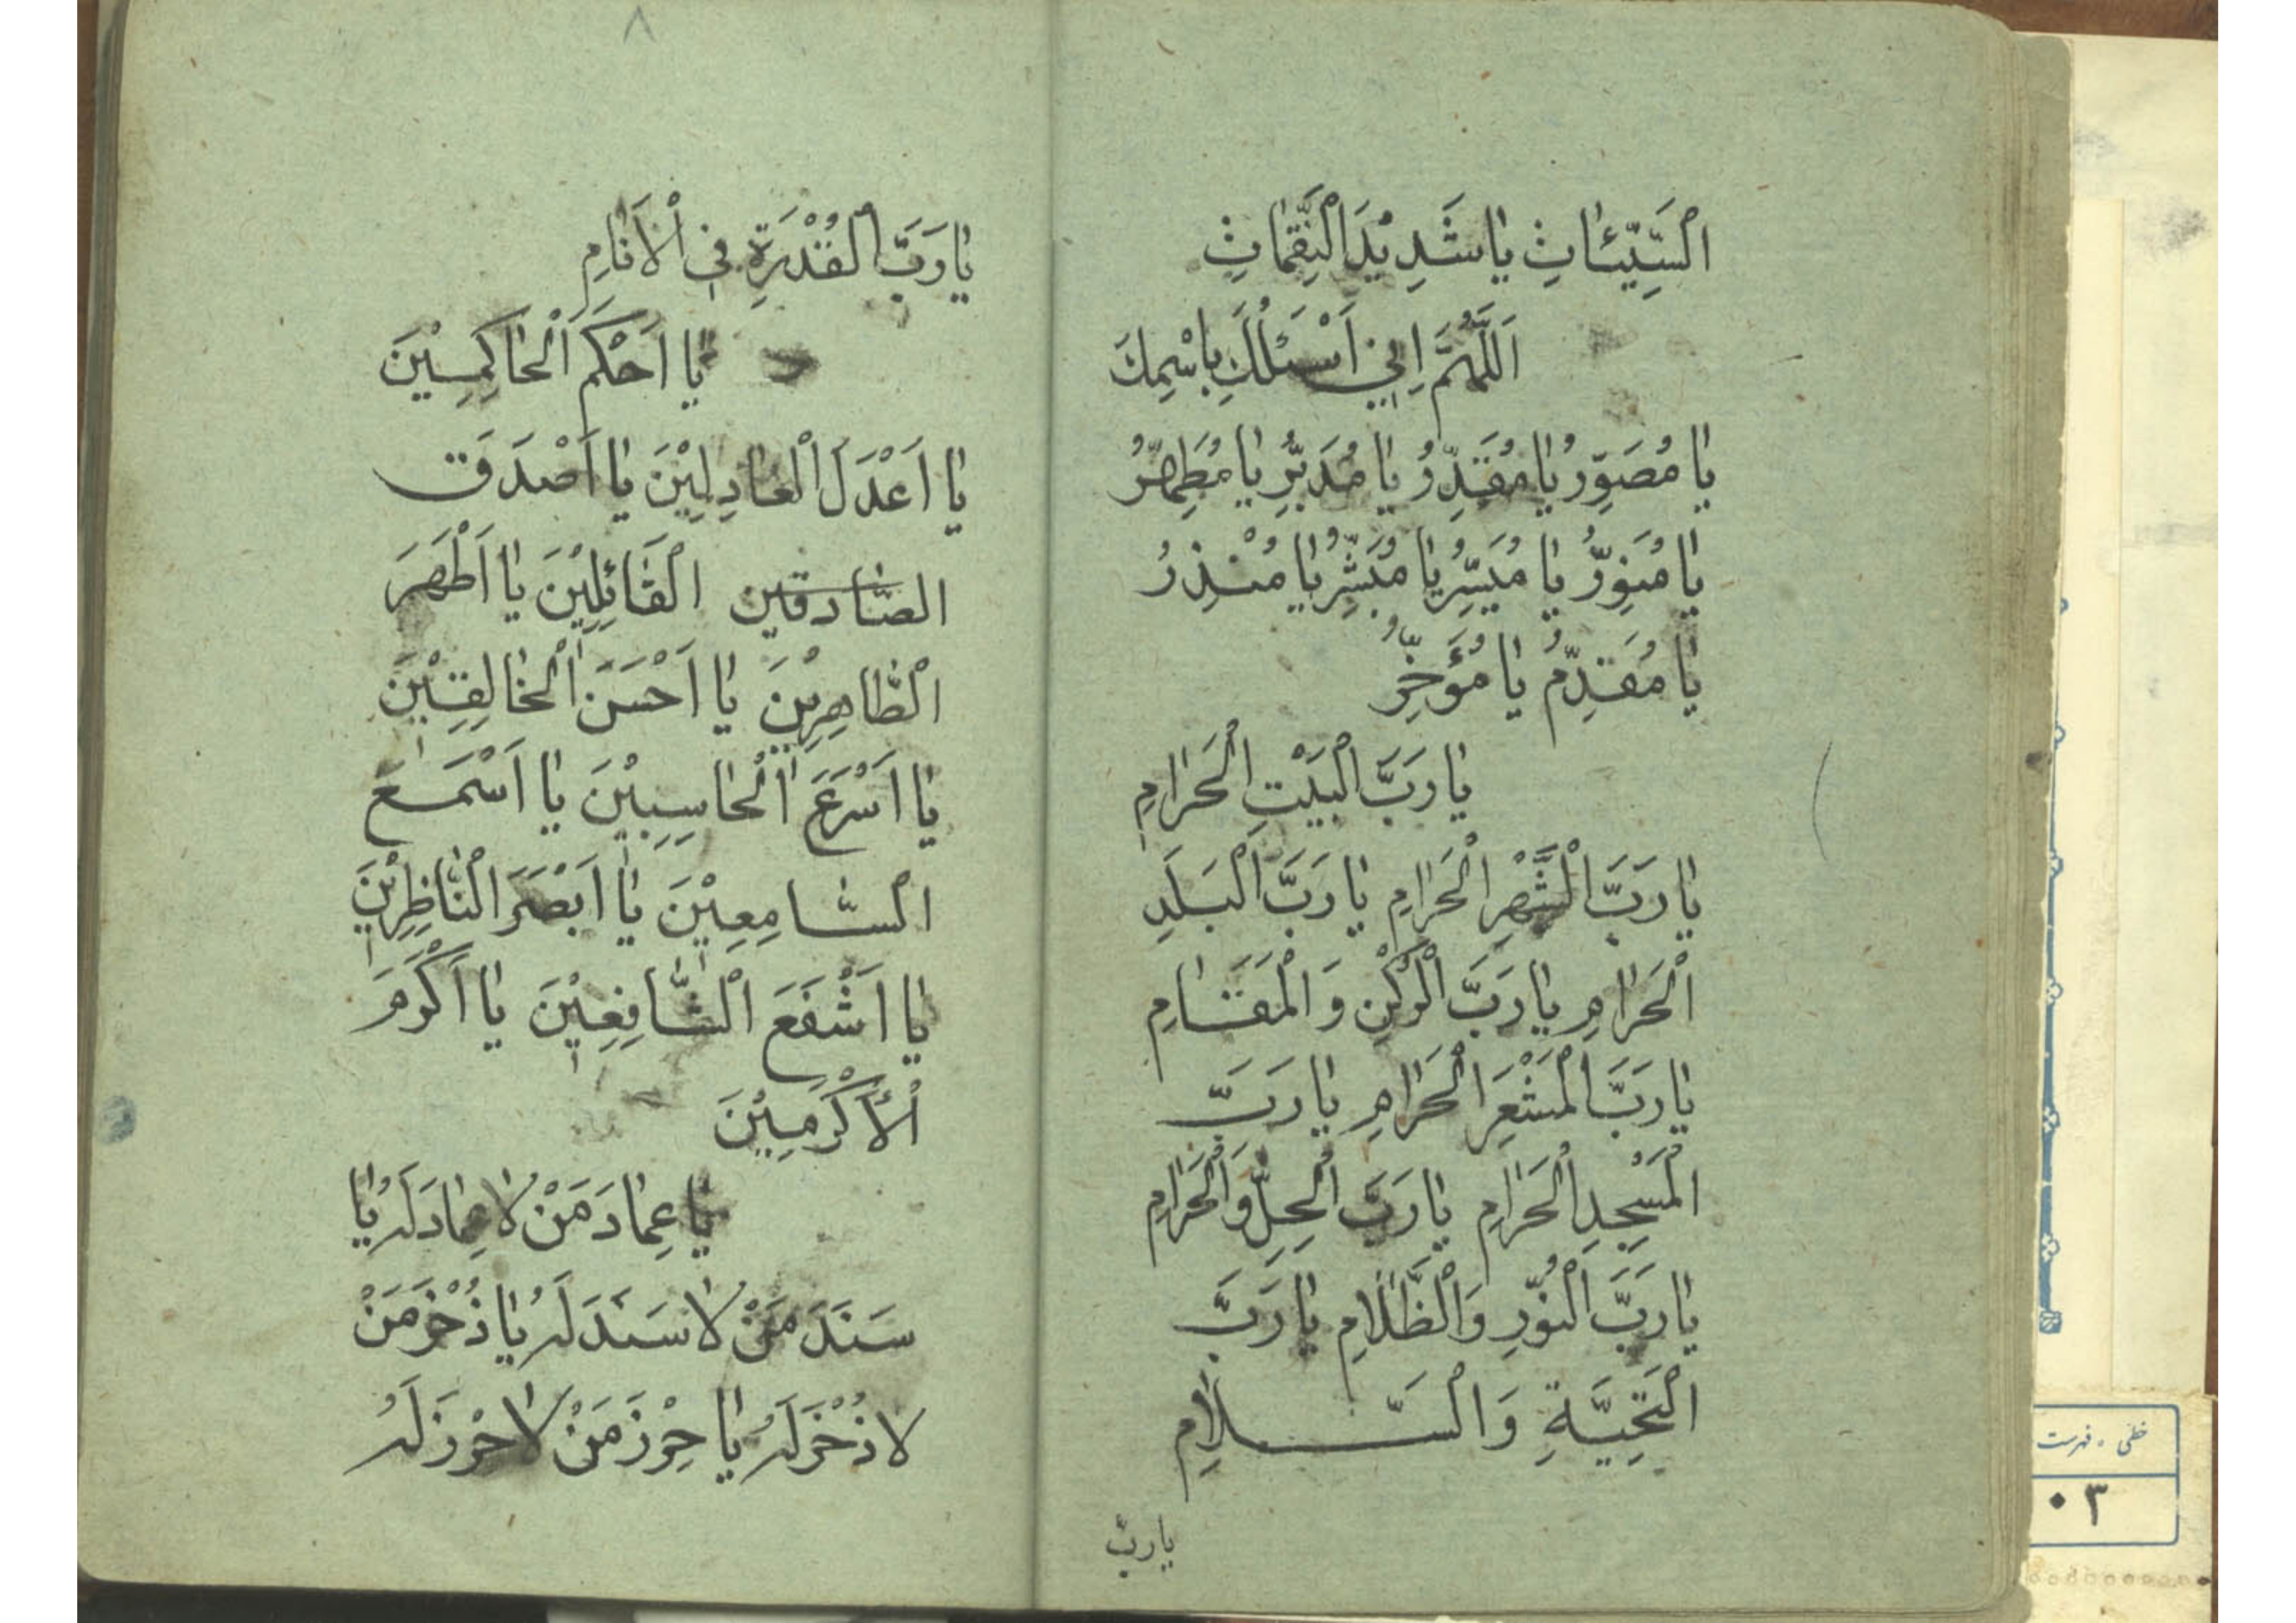 اَلسَّيِّئاتِ يا شَدِيْدَ النَّقِماتِ
اَللّهُمَّ اِنّي اَسْئَلُكَ بِاسْمِكَ
يا مُصَوِّرُ يا مُقَدِّرُ يا مُدَبِّرُ يا مُطَهِّرُ
يا مُنَوِّرُ يا مُيَسِّرُ يا مُبَشِّرُ يا مُنْذِرُ
يا مُقَدِّمُ يا مُؤَخِّرُ
يا رَبَّ الْبَيْتِ الْحَرامِ
يا رَبَّ الْشَّهْرِ الْحَرامِ يا رَبَّ الْبَلَدِ
الْحَرامِ يا رَبَّ الْرُكْنِ وَ الْمَقامِ
يا رَبَّ الْمَشْعَرِ الْحَرامِ يا رَبَّ
الْمَسْجِدِ الْحَرامِ يا رَبَّ الْحِلِّ وَ الْحَرامِ
يا رَبَّ الْنُّوْرِ وَ الْظَّلامِ يا رَبَّ
الْتَحِيَّةِ وَ الْسَّلامِ
يا ربّ
٨
يا رَبَّ الْقُدْرَةِ فِي الْاَنامِ
يا اَحْكَمَ الْحاكِمِيْنَ
يا اَعْدَلَ الْعادِلِيْنَ يا اَصْدَقَ
الصّادقين الْقائِلِيْنَ يا اَطْهَرَ
الْطّاهِرِيْنَ يا اَحْسَنَ الْخالِقِيْنَ
يا اَسْرَعَ الْحاسِبِيْنَ يا اَسْمَعَ
الْسّامِعِيْنَ يا اَبْصَرَ الْنّاظِرِيْنَ
يا اَشْفَعَ الْشّافِعِيْنَ يا اَكْرَمَ
الْأَكْرَمِيْنَ
يا عِمادَ مَنْ لا عِمادَ لَهُ يا
سَنَدَ مَنْ لا سَنَدَ لَهُ يا ذُخْرَ مَنْ
لا ذُخْرَ لَهُ يا حِرْزَ مَنْ لا حِرْزَ لَهُ
خطی ـ فهرست
٠٣